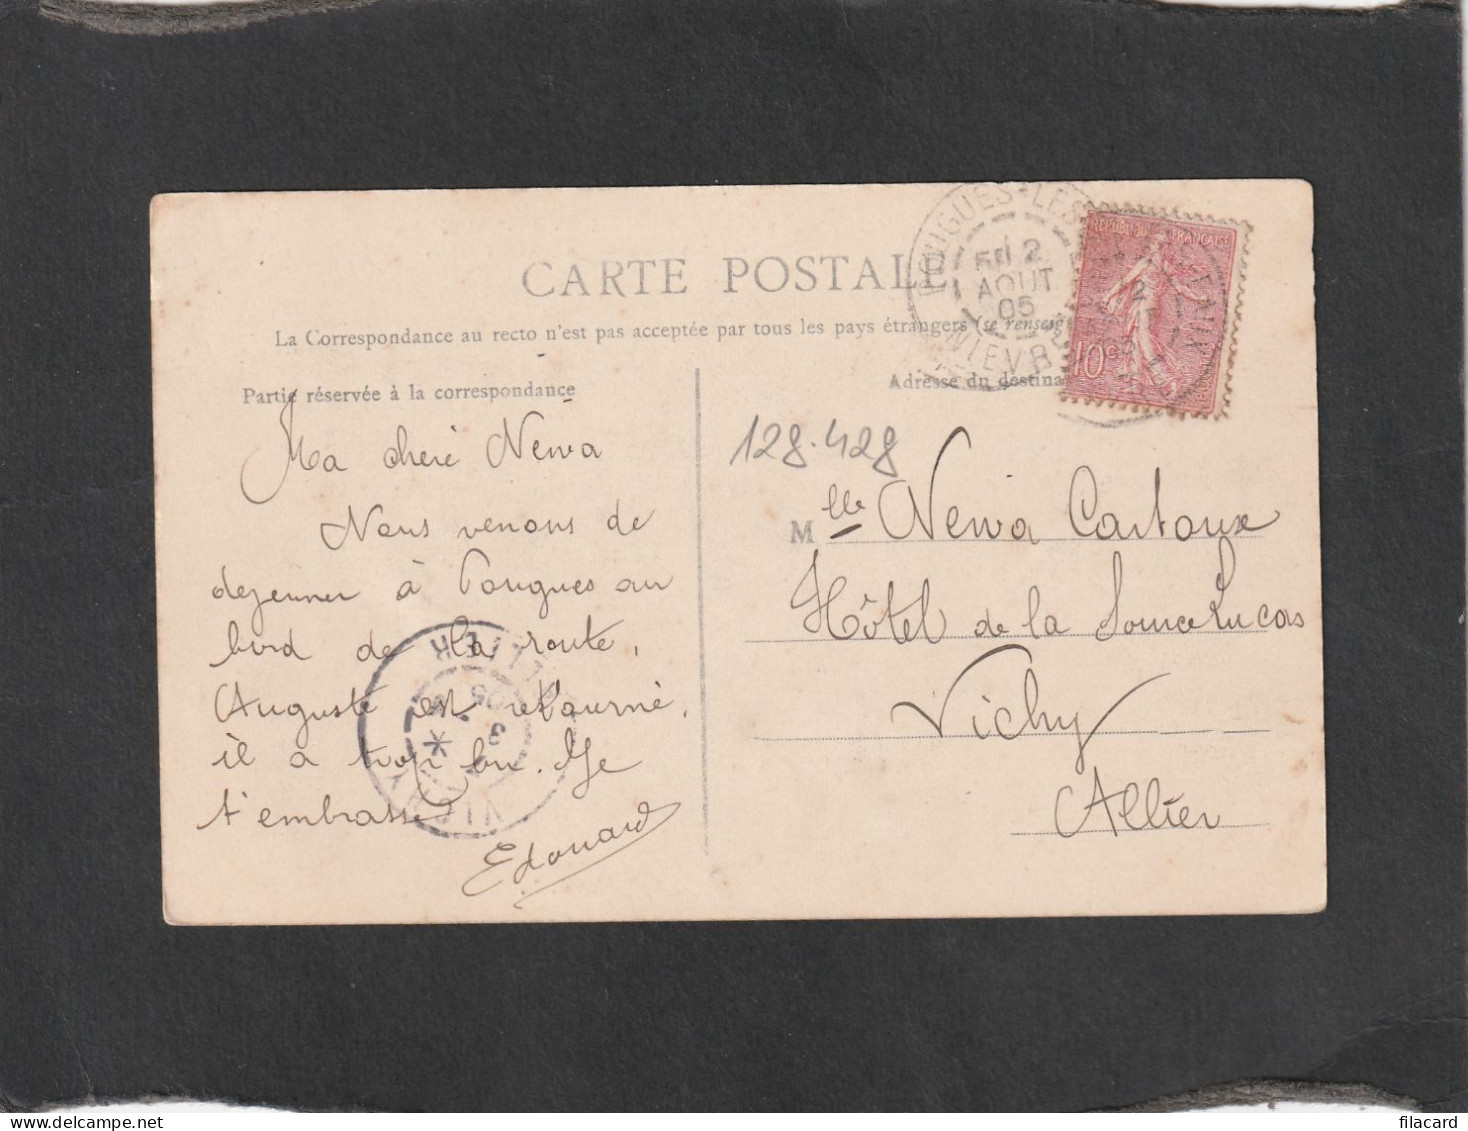 CARTE POSTALE
La Correspondance au recto n'est pas acceptée par tous les pays étrangers (se renseig
Partie réservée à la correspondance
Adresse du destina
Ma cheré Newa
Nous venons de
dejeuner à Pougues au
bord de la route,
Auguste est retourné,
il a trop bu. Je
t'embrasse
Edouard
128.428
Mlle Newa Cartoux
Hôtel de la Source Lucas
Vichy
Allier
POUGUES-LES
2
AOUT
05
NIEVR
REPUBLIQUE FRANCAISE
10c
VICHY
ALLIER
3
05
filacard